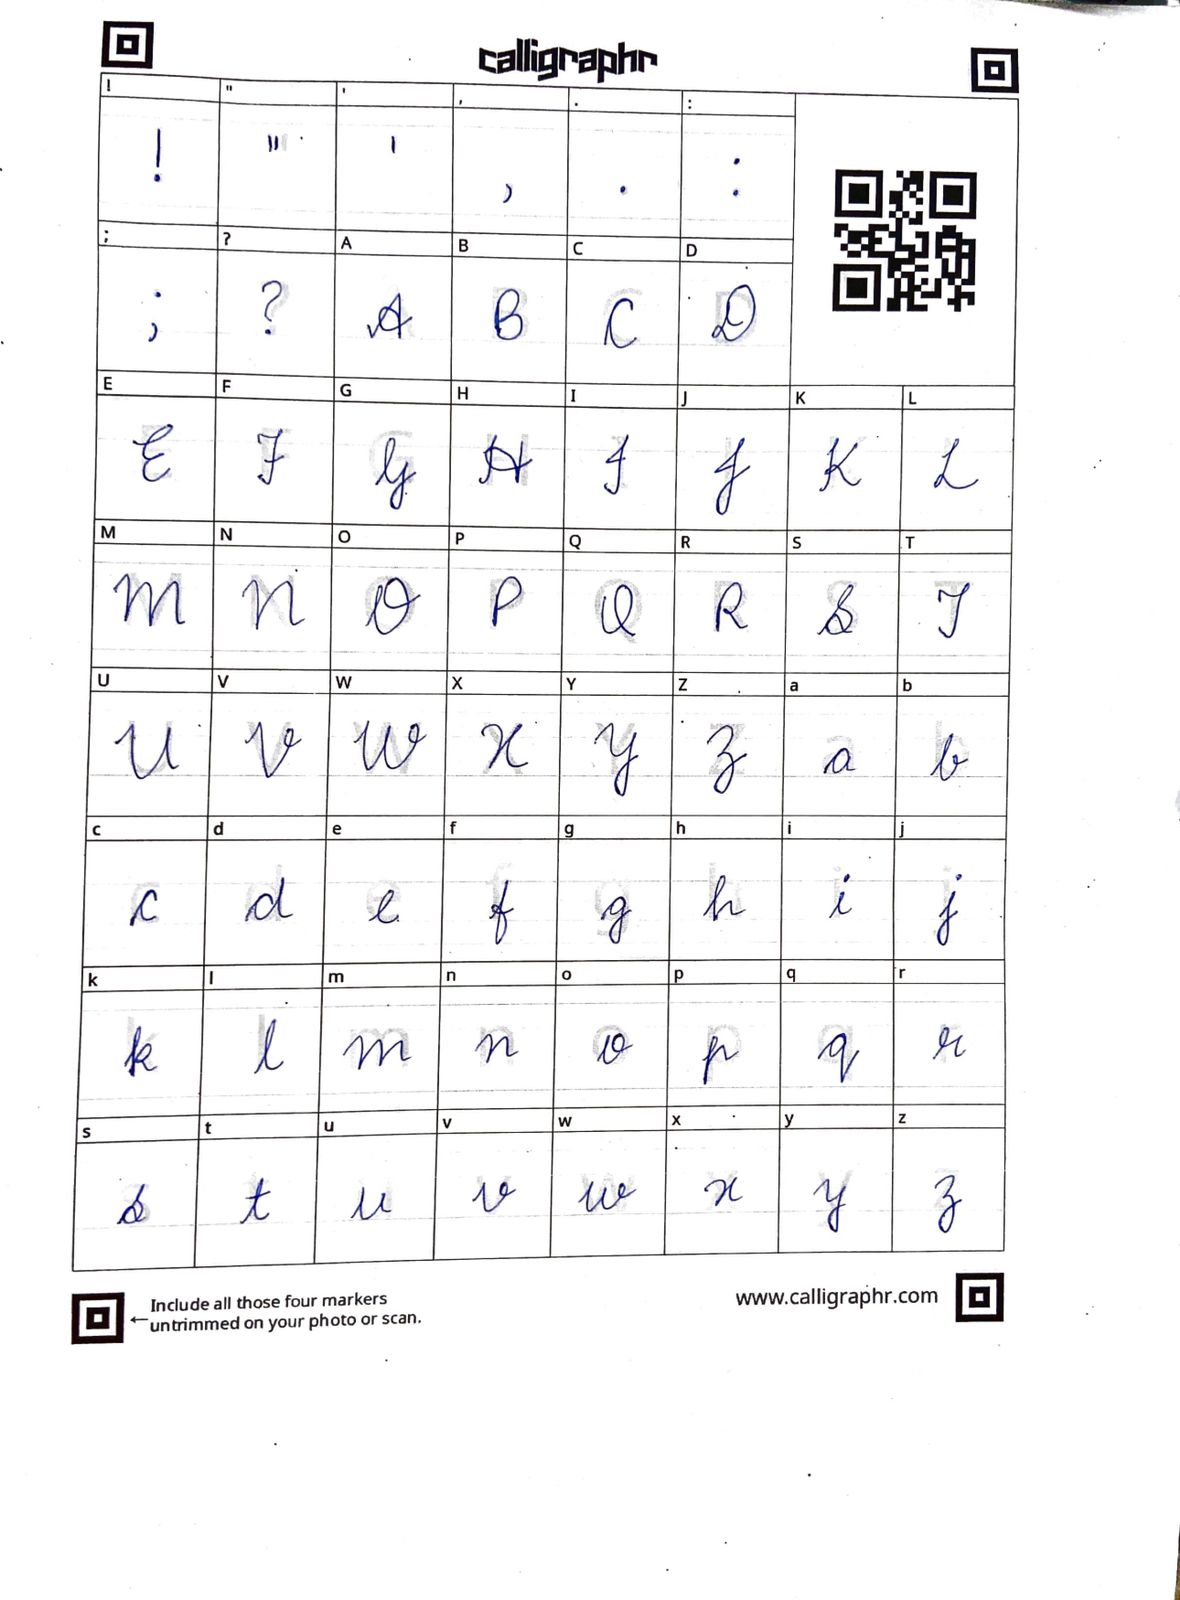 calligraphr
! " ' , . :
! " ' , . :
; ? A B C D
; ? A B C D
E F G H I J K L
E F G H I J K L
M N O P Q R S T
M N O P Q R S T
U V W X Y Z a b
U V W X Y Z a b
c d e f g h i j
c d e f g h i j
k l m n o p q r
k l m n o p q r
s t u v w x y z
s t u v w x y z
Include all those four markers
←untrimmed on your photo or scan.
www.calligraphr.com